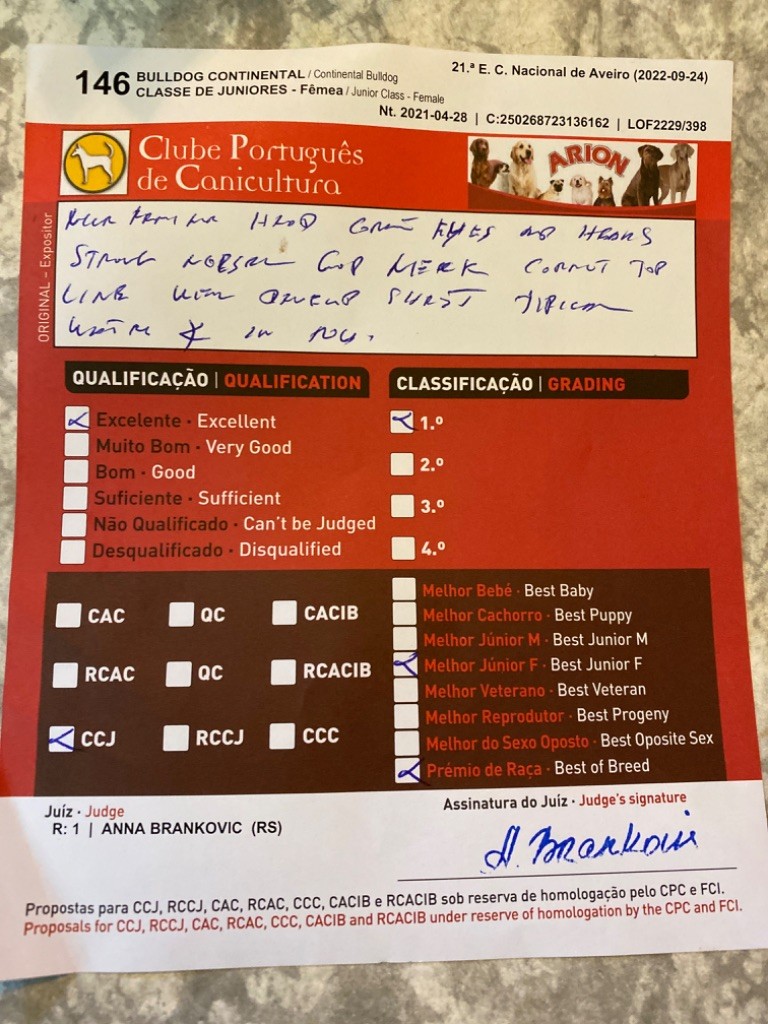 146 BULLDOG CONTINENTAL / Continental Bulldog
CLASSE DE JUNIORES - Fêmea / Junior Class - Female
21.ª E. C. Nacional de Aveiro (2022-09-24)
Nt. 2021-04-28 | C:250268723136162 | LOF2229/398
Clube Português
de Canicultura
ARION
ORIGINAL – Expositor
HEAD EYES
STRONG NECK TOP
LINE
IN
QUALIFICAÇÃO | QUALIFICATION
Excelente · Excellent
Muito Bom · Very Good
Bom · Good
Suficiente · Sufficient
Não Qualificado · Can't be Judged
Desqualificado · Disqualified
CLASSIFICAÇÃO | GRADING
1.º
2.º
3.º
4.º
CAC QC CACIB
RCAC QC RCACIB
CCJ RCCJ CCC
Melhor Bebé · Best Baby
Melhor Cachorro · Best Puppy
Melhor Júnior M · Best Junior M
Melhor Júnior F · Best Junior F
Melhor Veterano · Best Veteran
Melhor Reprodutor · Best Progeny
Melhor do Sexo Oposto · Best Oposite Sex
Prémio de Raça · Best of Breed
Juíz · Judge
R: 1 | ANNA BRANKOVIC (RS)
Assinatura do Juíz · Judge's signature
A. Brankovic
Propostas para CCJ, RCCJ, CAC, RCAC, CCC, CACIB e RCACIB sob reserva de homologação pelo CPC e FCI.
Proposals for CCJ, RCCJ, CAC, RCAC, CCC, CACIB and RCACIB under reserve of homologation by the CPC and FCI.